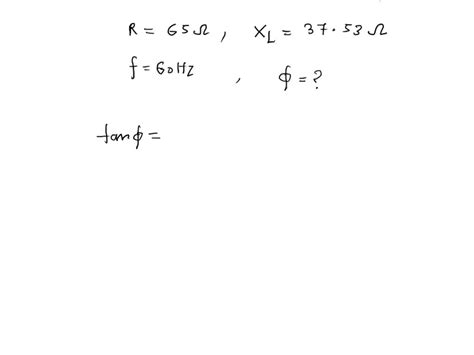 R = 65Ω, X_L = 37.53Ω
f = 60Hz, ϕ = ?
tanϕ =